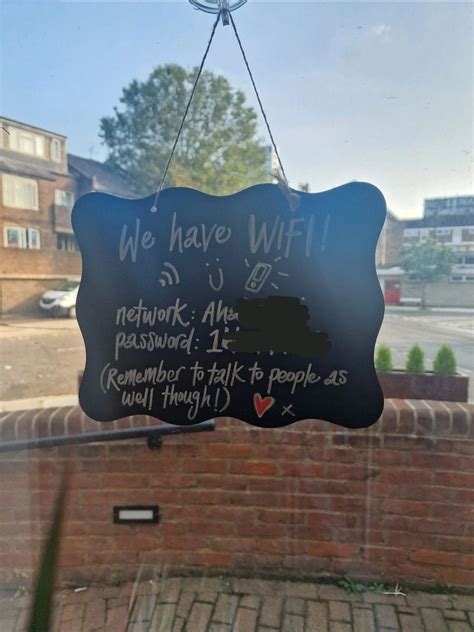 We have WIFI!
network: Aha
password: 1
(Remember to talk to people as
well though!) x